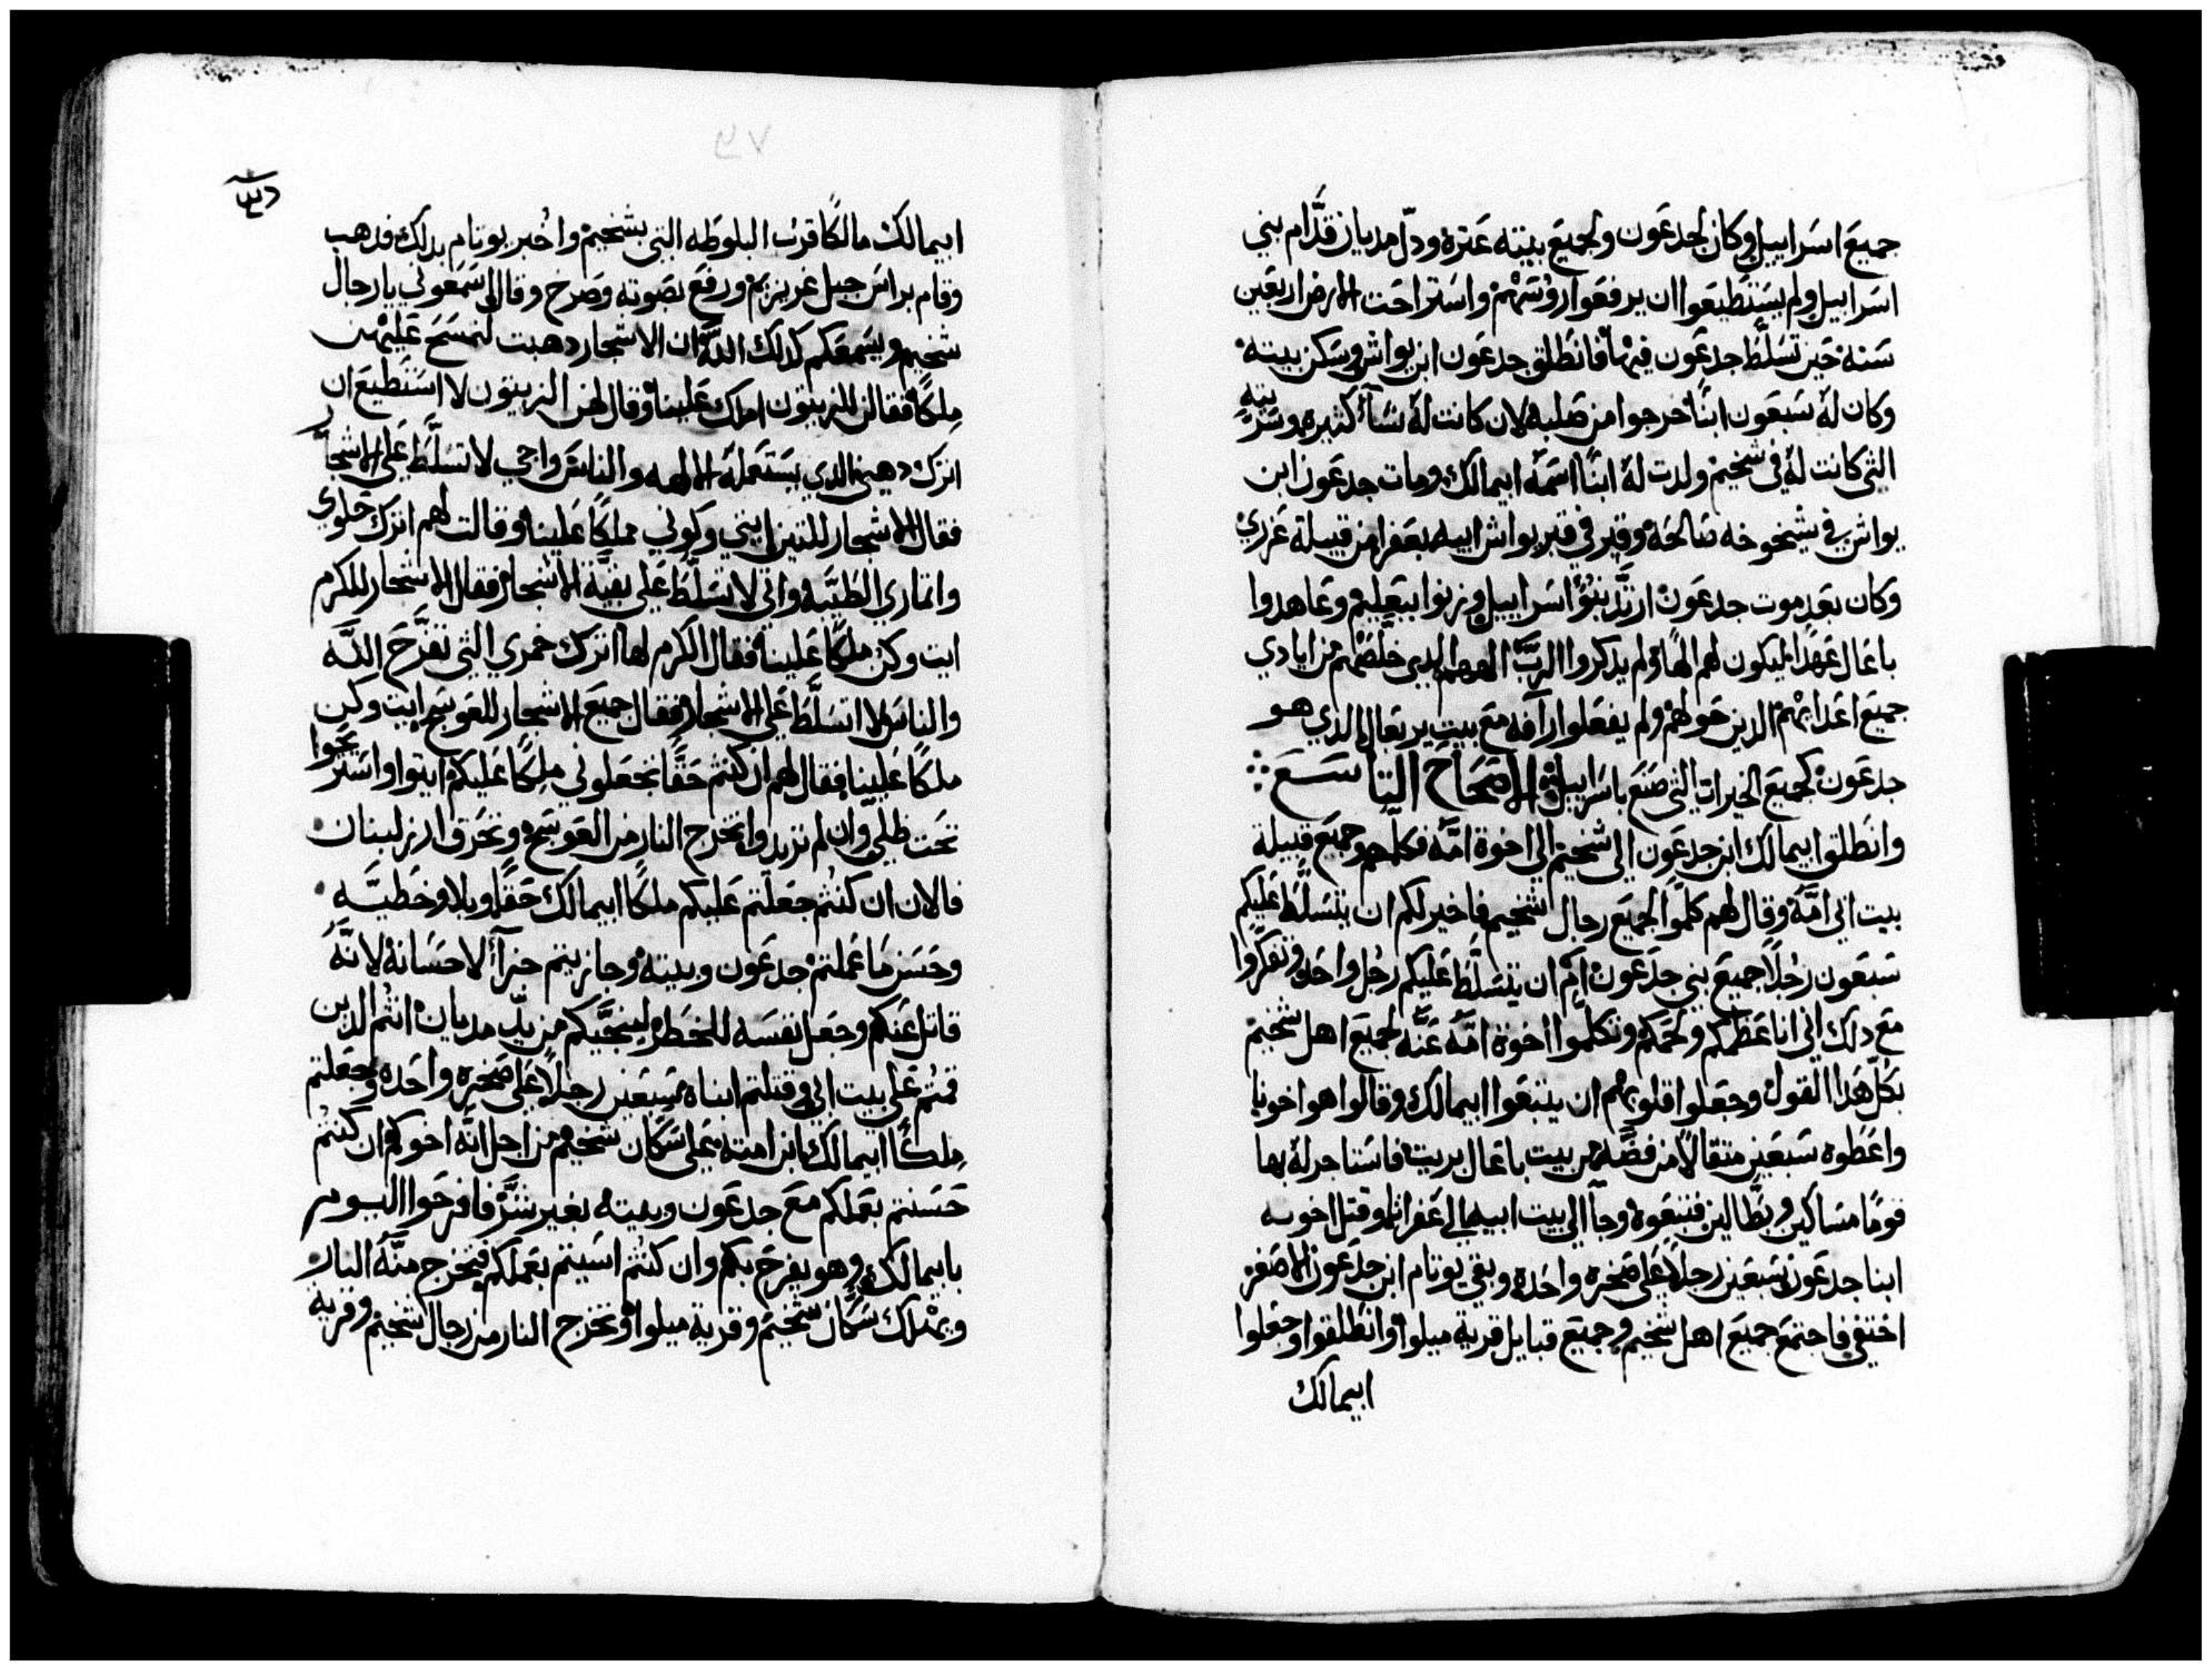 جميع اسراييل وكان لجدعون ولجميع بيته عثره وذل مديان قدّام بني
اسراييل ولم يستطيعوا ان يرفعوا روسهم واستراحت الارض اربعين
سنه حين تسلّط جدعون فيها فانطلق جدعون ابن يواش وسكن بيته
وكان له سبعون ابنًا خرجوا من صلبه لان كانت له نسآ كثيره وسريته
التي كانت له في شخيم ولدت له ابنًا اسمه ابيمالك ومات جدعون ابن
يواش في شيخوخه صالحه وقبر في قبر يواش ابيه بعفرا من قبيلة عزري
وكان بعد موت جدعون ارتدّ بنو اسراييل وزنوا ببعليم وعاهدوا
باعال عهدًا ليكون لهم الهًا ولم يذكروا الربّ الههم الذي خلصهم من ايادي
جميع اعدايهم الذين حولهم ولم يفعلوا رافه مع بيت يربعال الذي هو
جدعون كجميع الخيرات التي صنع باسراييل الاصحاح التاسع
وانطلق ابيمالك ابن جدعون الى شخيم الى اخوة امّه فكلمهم وجميع قبيلة
بيت ابي امّه وقال لهم كلموا لجميع رجال شخيم فاخير لكم ان يتسلّط عليكم
سبعون رجلًا جميع بني جدعون ام ان يتسلّط عليكم رجل واحد وتفكروا
مع ذلك اني انا عظمكم ولحمكم وتكلموا اخوة امّه عنّه لجميع اهل شخيم
بكل هذا القول وجعلوا قلوبهم ان يتبعوا ابيمالك وقالوا هو اخونا
واعطوه سبعين مثقالًا من فضّه من بيت باعال بريت فاستاجر له بها
قومًا مساكين وبطالين فتبعوه وجآ الى بيت ابيه الى عفراتا وقتل اخوته
ابنا جدعون سبعين رجلًا على صخره واحده وبقي يوتام ابن جدعون الاصغر
اختفي فاجتمع جميع اهل شخيم وجميع قبايل قرية ميلوا وانطلقوا وجعلوا
ابيمالك
ابيمالك مالكًا قرب البلوطه التي بشخيم واخبر يوتام بذلك فذهب
وقام براس جبل غريزيم ورفع بصوته وصرخ وقال اسمعوني يا رجال
شخيم ويسمعكم كذلك اللّه ان الاشجار ذهبت لتمسح عليهن
ملكًا فقالن للزيتون املك علينا وقال لهن الزيتون لا استطيع ان
اترك دهني الذي يستعمله الالهه والناس واجي لاتسلّط على الاشجار
فقال الاشجار للتين ايتي وكوني مملكًا علينا وقالت لهم اترك حلوى
واثماري الطيّبه واتي لاتسلّط على بقيّة الاشجار فقال الاشجار للكرم
ايت وكن ملكًا علينا فقال الكرم لها اترك خمري التي تفرّح اللّه
والناس لاتسلّط على الاشجار فقال جميع الاشجار للعوسج ايت وكن
ملكًا علينا فقال لهم ان كنتم حقًا تجعلوني ملكًا عليكم ايتوا واستريحوا
تحت ظلي وان لم تريدوا تخرج النار من العوسجه وتحرق ارز لبنان
فالان ان كنتم جعلتم عليكم ملكًا ابيمالك حقًا وبلا خطيّه
وحسن ما عملتم جدعون وبيته وجازيتم جزآ لاحسانه لانّه
قاتل عنكم وجعل نفسه للخطر لينجّيكم من يدّ مديان انتم الذين
قمتم على بيت ابي وقتلتم ابناه سبعين رجلًا على صخره واحده وجعلتم
ملكًا ابيمالك ابن امته على سكان شخيم من اجل انّه اخوكم وان كنتم
حسنتم بعملكم مع جدعون وبيته بغير شرّ فافرحوا اليوم
بابيمالك وهو يفرح بكم وان كنتم اسيتم بعملكم فتخرج منّه النار
ويهلك سكان شخيم وقرية ميلوا وتخرج النار من رجال شخيم وقرية